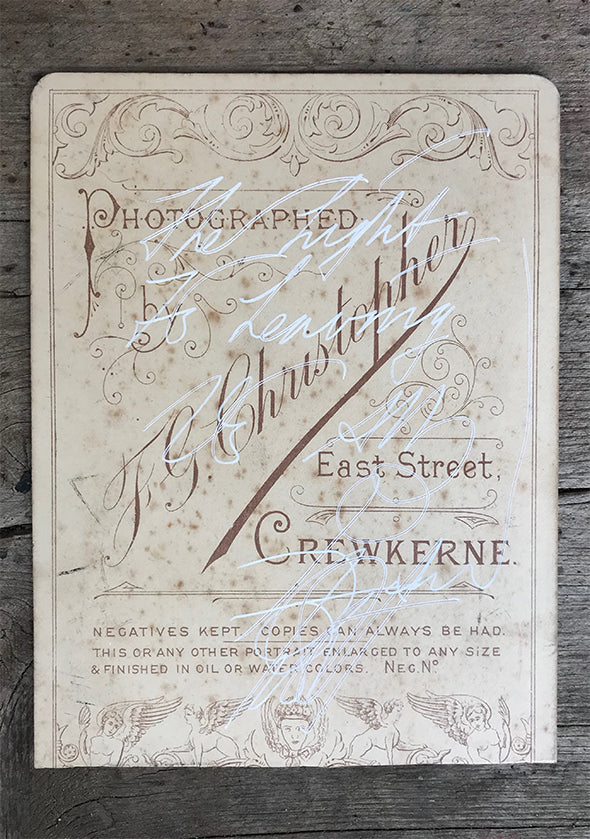 PHOTOGRAPHED
by
F. G. Christopher
East Street,
CREWKERNE.
NEGATIVES KEPT. COPIES CAN ALWAYS BE HAD.
THIS OR ANY OTHER PORTRAIT ENLARGED TO ANY SIZE
& FINISHED IN OIL OR WATER COLORS. NEG. No
The Light
Is Leaving
Us